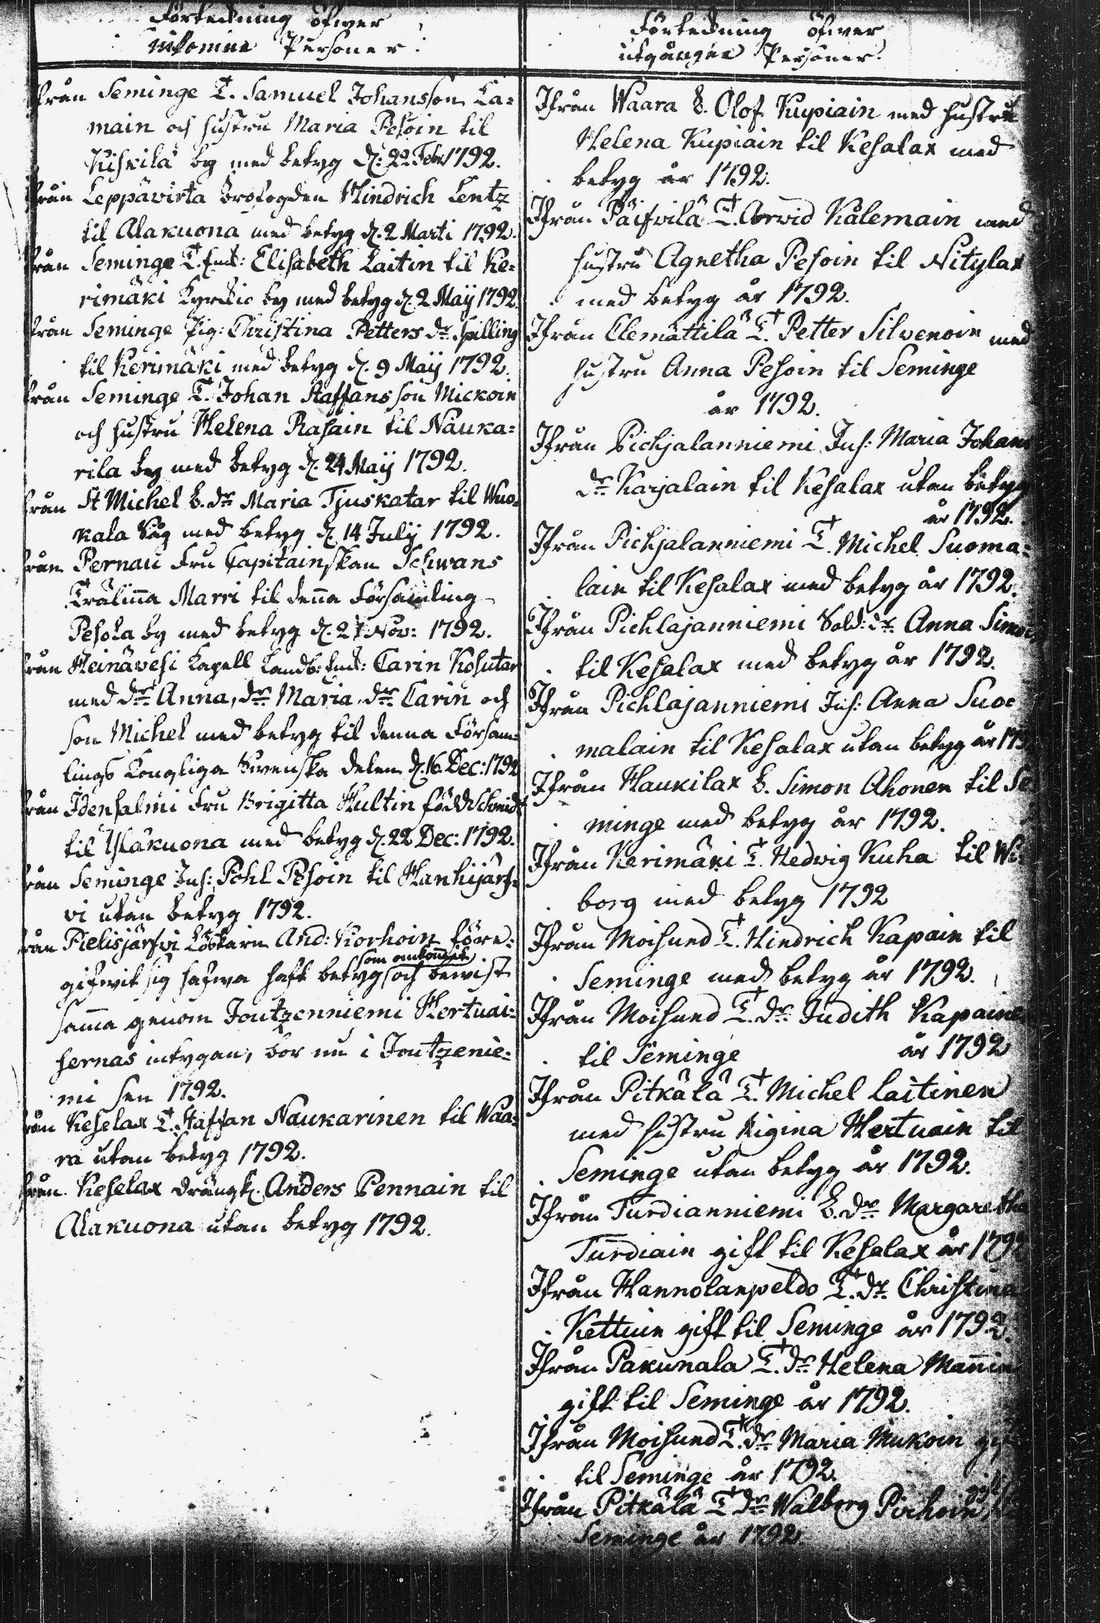 Förtekning öfwer
inkomne Personer.
Från Seminge T. Samuel Johansson La=
main och hustru Maria Pesoin til
Kiskilä by med betyg d: 22 Febr 1792.
Från Leppävirta Brofogden Hindrich Lentz
til Alakuona med betyg d. 2 Marti 1792.
Från Seminge T. Enk: Elisabeth Laitin til Ke=
rimäki by med betyg d. 2 Maÿ 1792.
Från Seminge Pig: Christina Petters dr Spilling
til Kerimäki med betyg d. 9 Maÿ 1792.
Från Seminge T. Johan Staffansson Mickoin
och hustru Helena Rasain til Nauka=
rila by med betyg d. 24 Maÿ 1792.
Från St Michel B. dr Maria Tjuskatar til Wuo=
kala Såg med betyg d. 14 July 1792.
Från Pernau Fru Capitainskan Schwans
Trälinna Marri til denna Församling
Pesola by med betyg d. 27 Nov: 1792.
Från Heinävesi Capell Landb: Enk: Carin Kosutar
med dr Anna, dr Maria, dr Carin och
son Michel med betyg til denna Försam=
lings Kongliga Swenska delen d. 16 Dec: 1792
Från Idensalmi Fru Brigitta Hultin född Schmidt
til Ylakuona med betyg d. 22 Dec: 1792.
Från Seminge Inh: Pehl Pesoin til Hanhijärf=
vi utan betyg 1792.
Från Pielisjärfvi Löskarin And: Korhoin före=
gifwit sig hafwa haft betyg som omkommit och bewist
samma genom Joutzenniemi Hertuai=
sernas intygan, bor nu i Joutzenie=
mi sen 1792.
Från Keselax T. Staffan Naukarinen til Waa=
ra utan betyg 1792.
Från Keselax Drängk. Anders Pennain til
Alakuona utan betyg 1792.
Förtekning öfwer
utgångne Personer.
Ifrån Waara B. Olof Kupiain med hustru
Helena Kupiain til Kesalax med
betyg år 1792.
Ifrån Päifvilä T. Arvid Kälemain med
hustru Agnetha Pesoin til Nitylax
med betyg år 1792.
Ifrån Clemättilä T. Petter Silvenoin med
hustru Anna Pesoin til Seminge
år 1792.
Ifrån Pichjalanniemi Inh: Maria Johans
dr Karjalain til Kesalax utan betyg
år 1792.
Ifrån Pichjalanniemi T. Michel Suoma=
lain til Kesalax med betyg år 1792.
Ifrån Pichlajanniemi Sold: dr Anna
til Kesalax med betyg år 1792.
Ifrån Pichlajanniemi Inh: Anna Suo=
malain til Kesalax utan betyg år 179
Ifrån Haukilax B. Simon Ahonen til Se
minge med betyg år 1792.
Ifrån Kerimäki T. Hedwig Kuha til Wi=
borg med betyg 1792
Ifrån Moisund T. Hindrich Kapain til
Seminge med betyg år 1792.
Ifrån Moisund T. dr Judith Kapaine
til Seminge år 1792
Ifrån Pitkälä T. Michel Laitinen
med hustru Rigina Hertuain til
Seminge utan betyg år 1792.
Ifrån Turdianniemi B. dr Margaretha
Turdiain gift til Kesalax år 1792
Ifrån Hannolanpeldo T. dr Christina
Kettuin gift til Seminge år 1792.
Ifrån Pakunala T. dr Helena Mannin
gift til Seminge år 1792.
Ifrån Moisund T. dr Maria Mukoin
til Seminge år 1792.
Ifrån Pitkälä T. dr Walborg Pirhoin
Seminge år 1792.